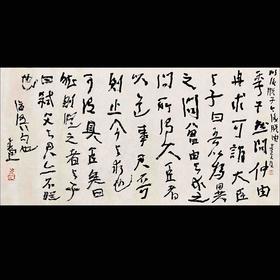 季子然問仲由
冉求可謂大臣
与子曰吾以子為異
之問曾由与求之
問所謂大臣者
以道事君不可
則止今由与求也
可謂具臣矣曰
然則從之者与子
曰弑父与君亦不從
也